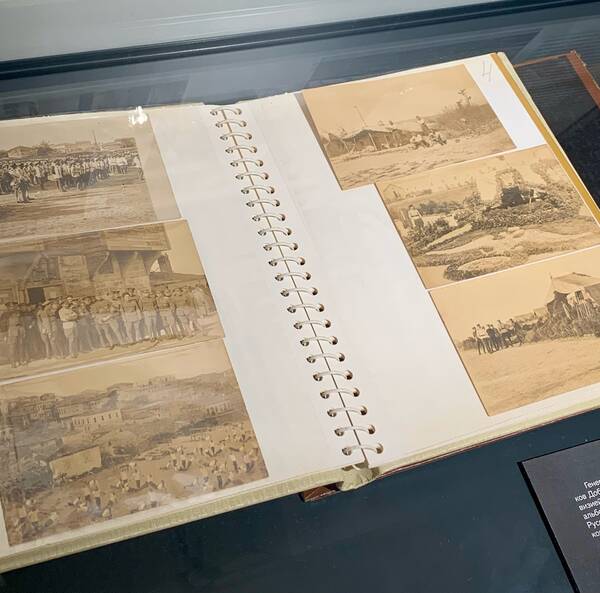 4
Гене
ков Доб
визией
альбо
Русс
кот